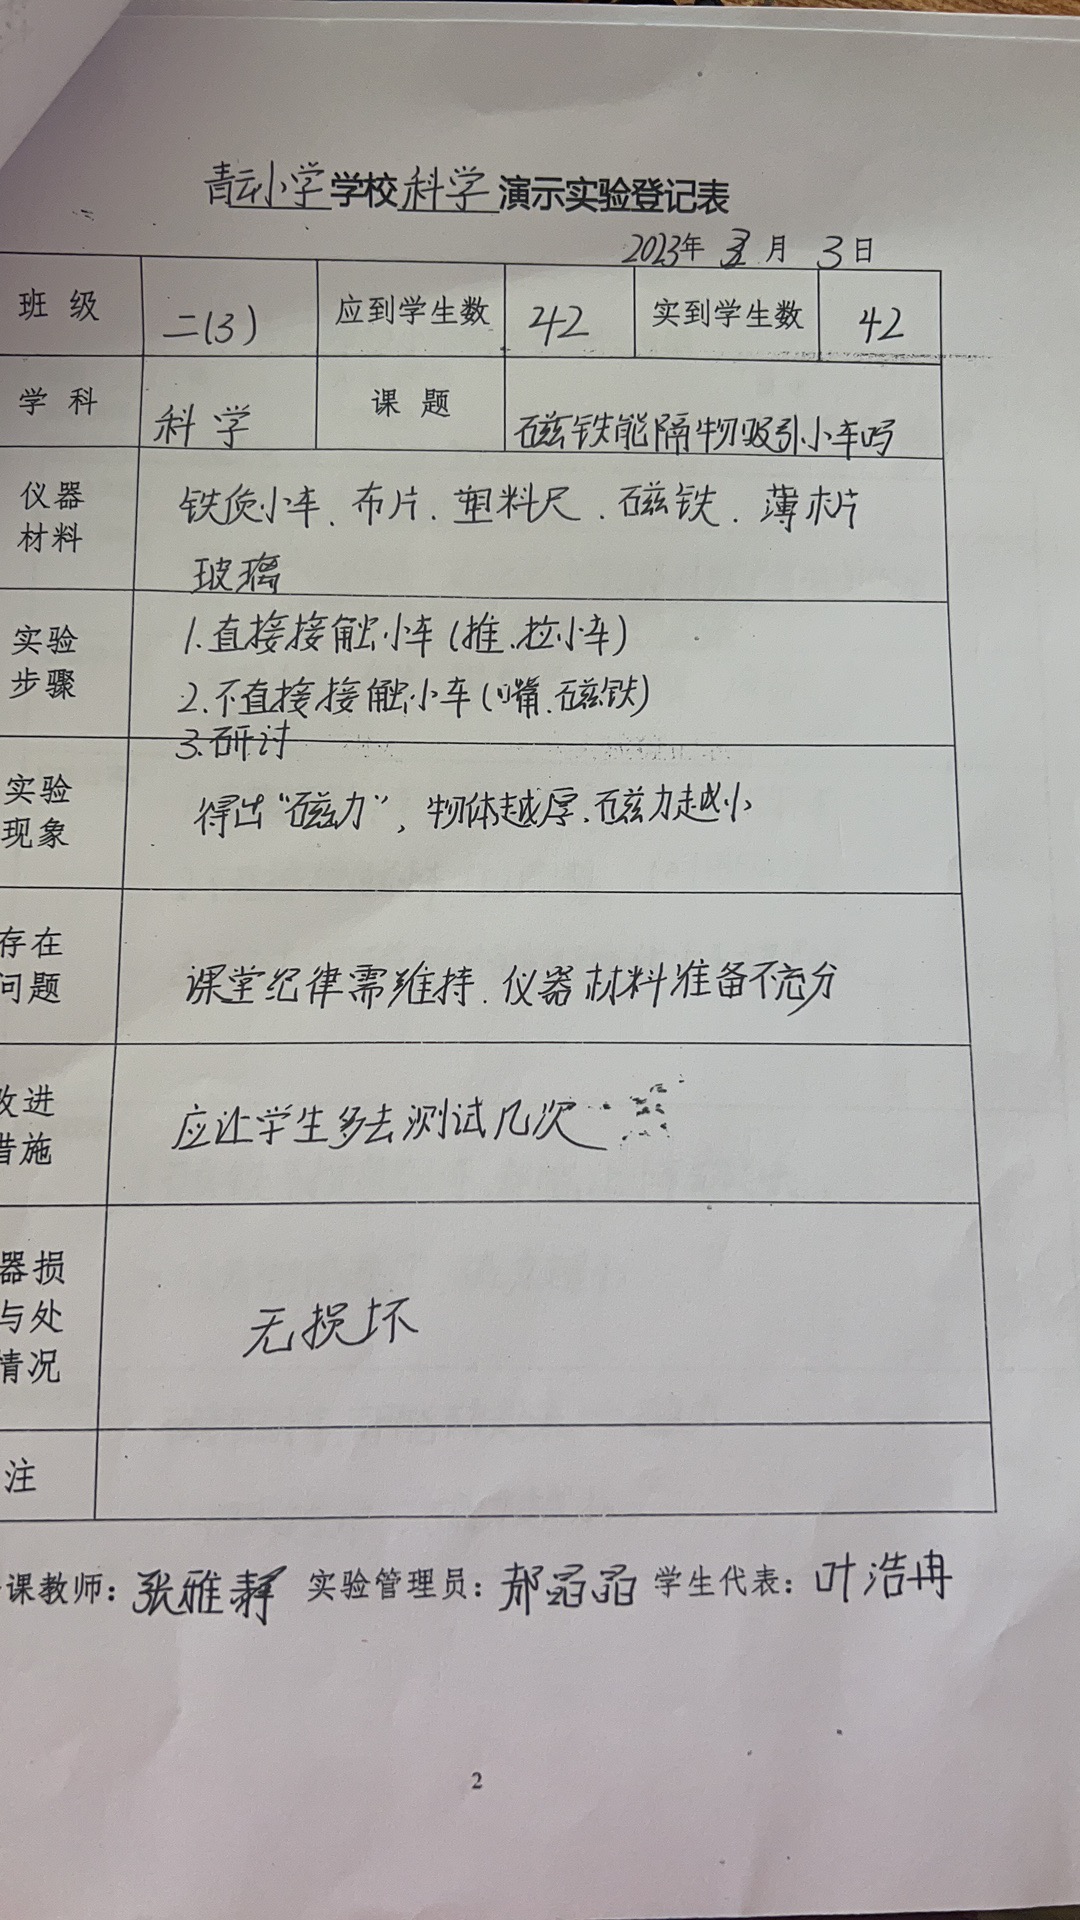 青云小学学校科学演示实验登记表
2023年 月 3日
班级 二(3) 应到学生数 42 实到学生数 42
学科 科学 课题 磁铁能隔物吸引小车吗
仪器材料 铁质小车、布片、塑料尺、磁铁、薄木片
玻璃
实验步骤 1.直接接触小车(推、拉小车)
2.不直接接触小车(嘴、磁铁)
3.研讨
实验现象 得出“磁力”,物体越厚、磁力越小
存在问题 课堂纪律需维持、仪器材料准备不充分
改进措施 应让学生多去测试几次
器损
与处
情况 无损坏
注
课教师:张雅静 实验管理员:郝晶晶 学生代表:叶浩冉
2